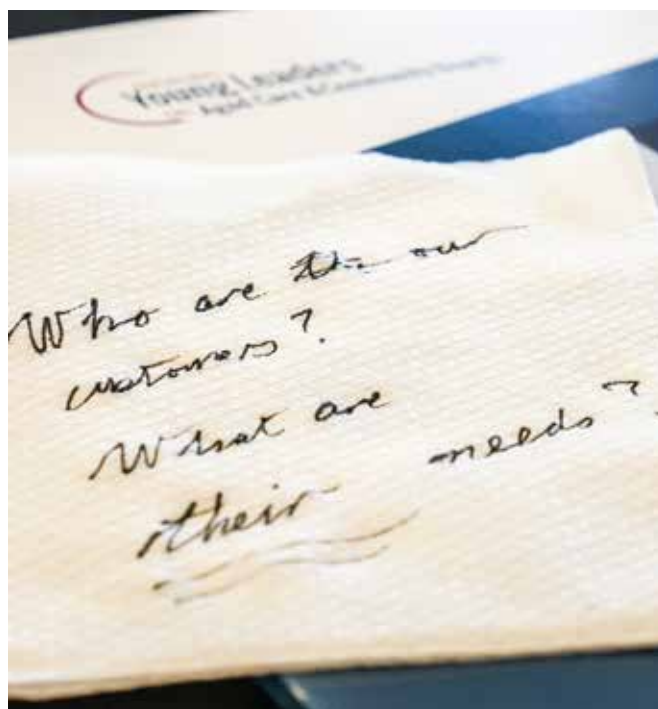 Young Leaders
in Aged Care & Community
Who are our
customers?
What are
their needs?